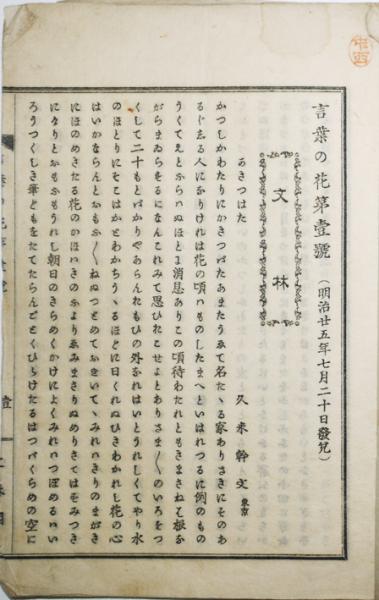 言葉の花第壹號（明治廿五年七月二十日發兌）
文林
久米幹文 東京
あきつはた
かつしかわたりにかきつばたあまたうゑて名たゝる家ありさきにそのあ
るじゑる人になりければ花の頃ハものしたまへといはれつるに例のもの
うくてえとふらハぬほとに消息ありこの頃待わたれともきまさねと根な
がらまゐらするになんこれみて思ひおこせよとありさま〴〵のいろをつ
くして二十もとばかりやあらんたもひの外なれはいとうれしくてやり水
のほとりにそこはかとわかちうゝるほどに日くれぬひきわかれし花の心
はいかならんとおもふ〳〵ねぬつとめておきいてゝみれハきりのまがき
にほのめきたる花のかほハきのふよりゑみまさりぬめりさてはをみつき
になりとおもふもうれし朝日のきらめくかけによくみれハつぼめるハい
ろうつくしき筆どもをたてたらんごとくひらけたるはつバくらめの空に